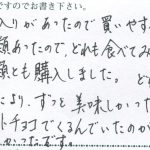 ですのでお書き下さい。
入りがあったので買いやす
類あったので、どれも食べてみ
類とも購入しました。ど
により、ずっと美味しかった
トチョコでくるんでいたのが
かったです。